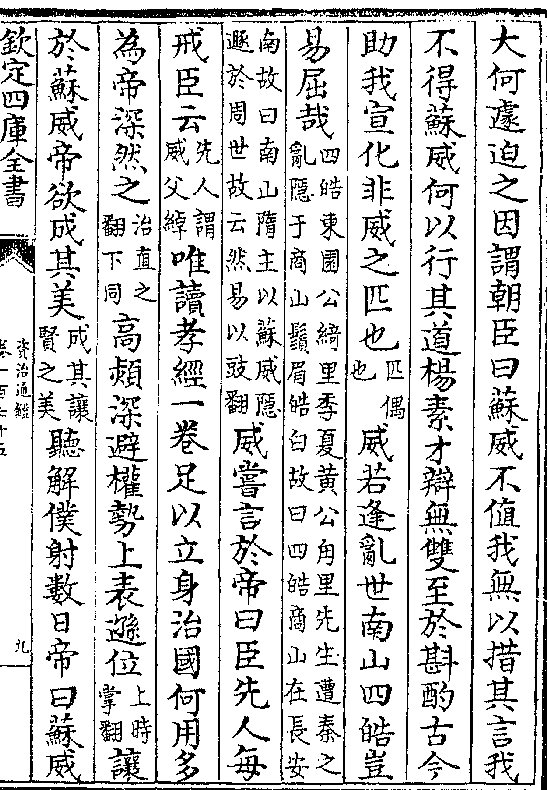 大何遽迫之因謂朝臣曰蘇威不值我無以措其言我
不得蘇威何以行其道楊素才辯無雙至於斟酌古今
助我宣化非威之匹也匹偶也威若逢亂世南山四皓豈
易屈哉四皓東園公綺里季夏黃公角里先生遭秦之亂隱于商山鬚眉皓白故曰四皓商山在長安
南故曰南山隋主以蘇威隱遯於周世故云然易以豉翻威嘗言於帝曰臣先人每
戒臣云先人謂威父綽唯讀孝經一卷足以立身治國何用多
為帝深然之治直之翻下同高熲深避權勢上表遜位上時掌翻讓
於蘇威帝欲成其美成其讓賢之美聽解僕射數日帝曰蘇威
欽定四庫全書
資治通鑑
卷一百七十五
九